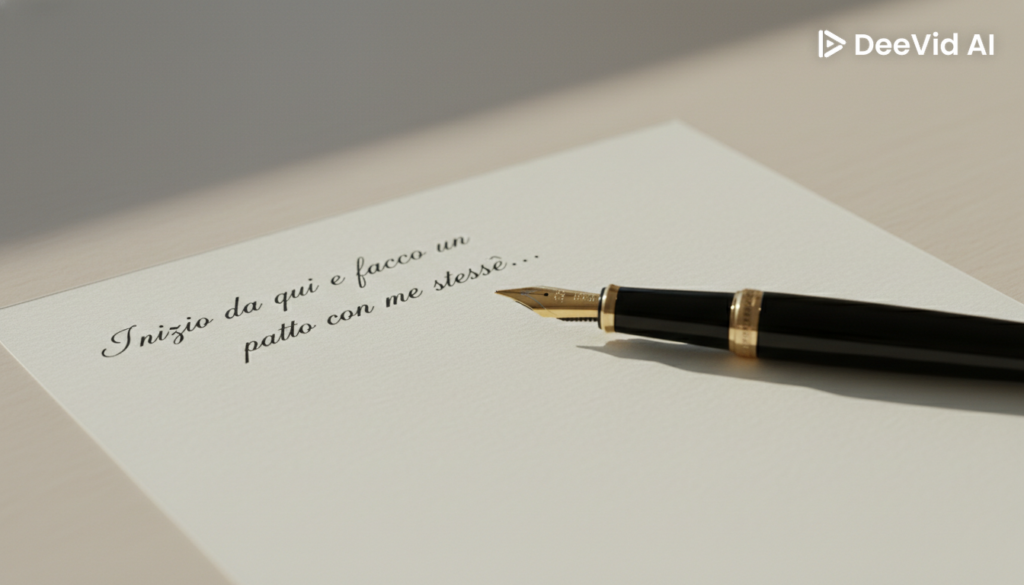 DeeVid AI
Inizio da qui e facco un
patto con me stessè...